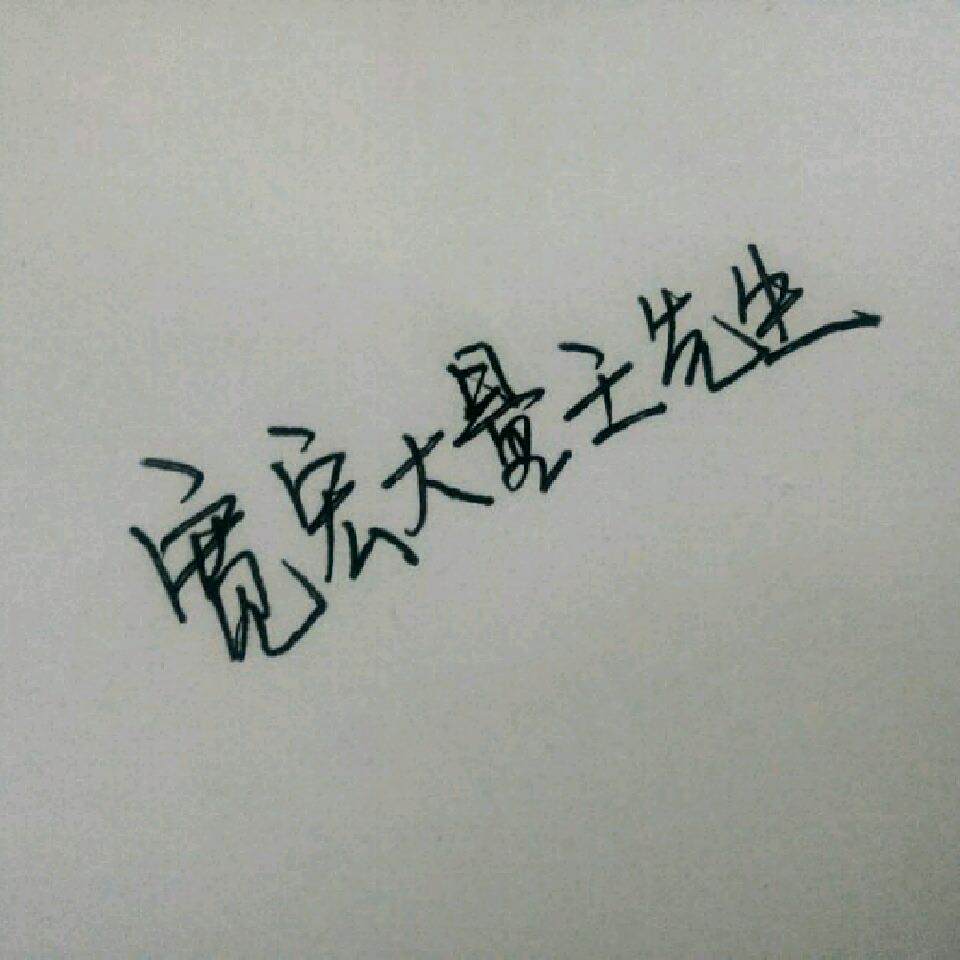 宽宏大量王先生